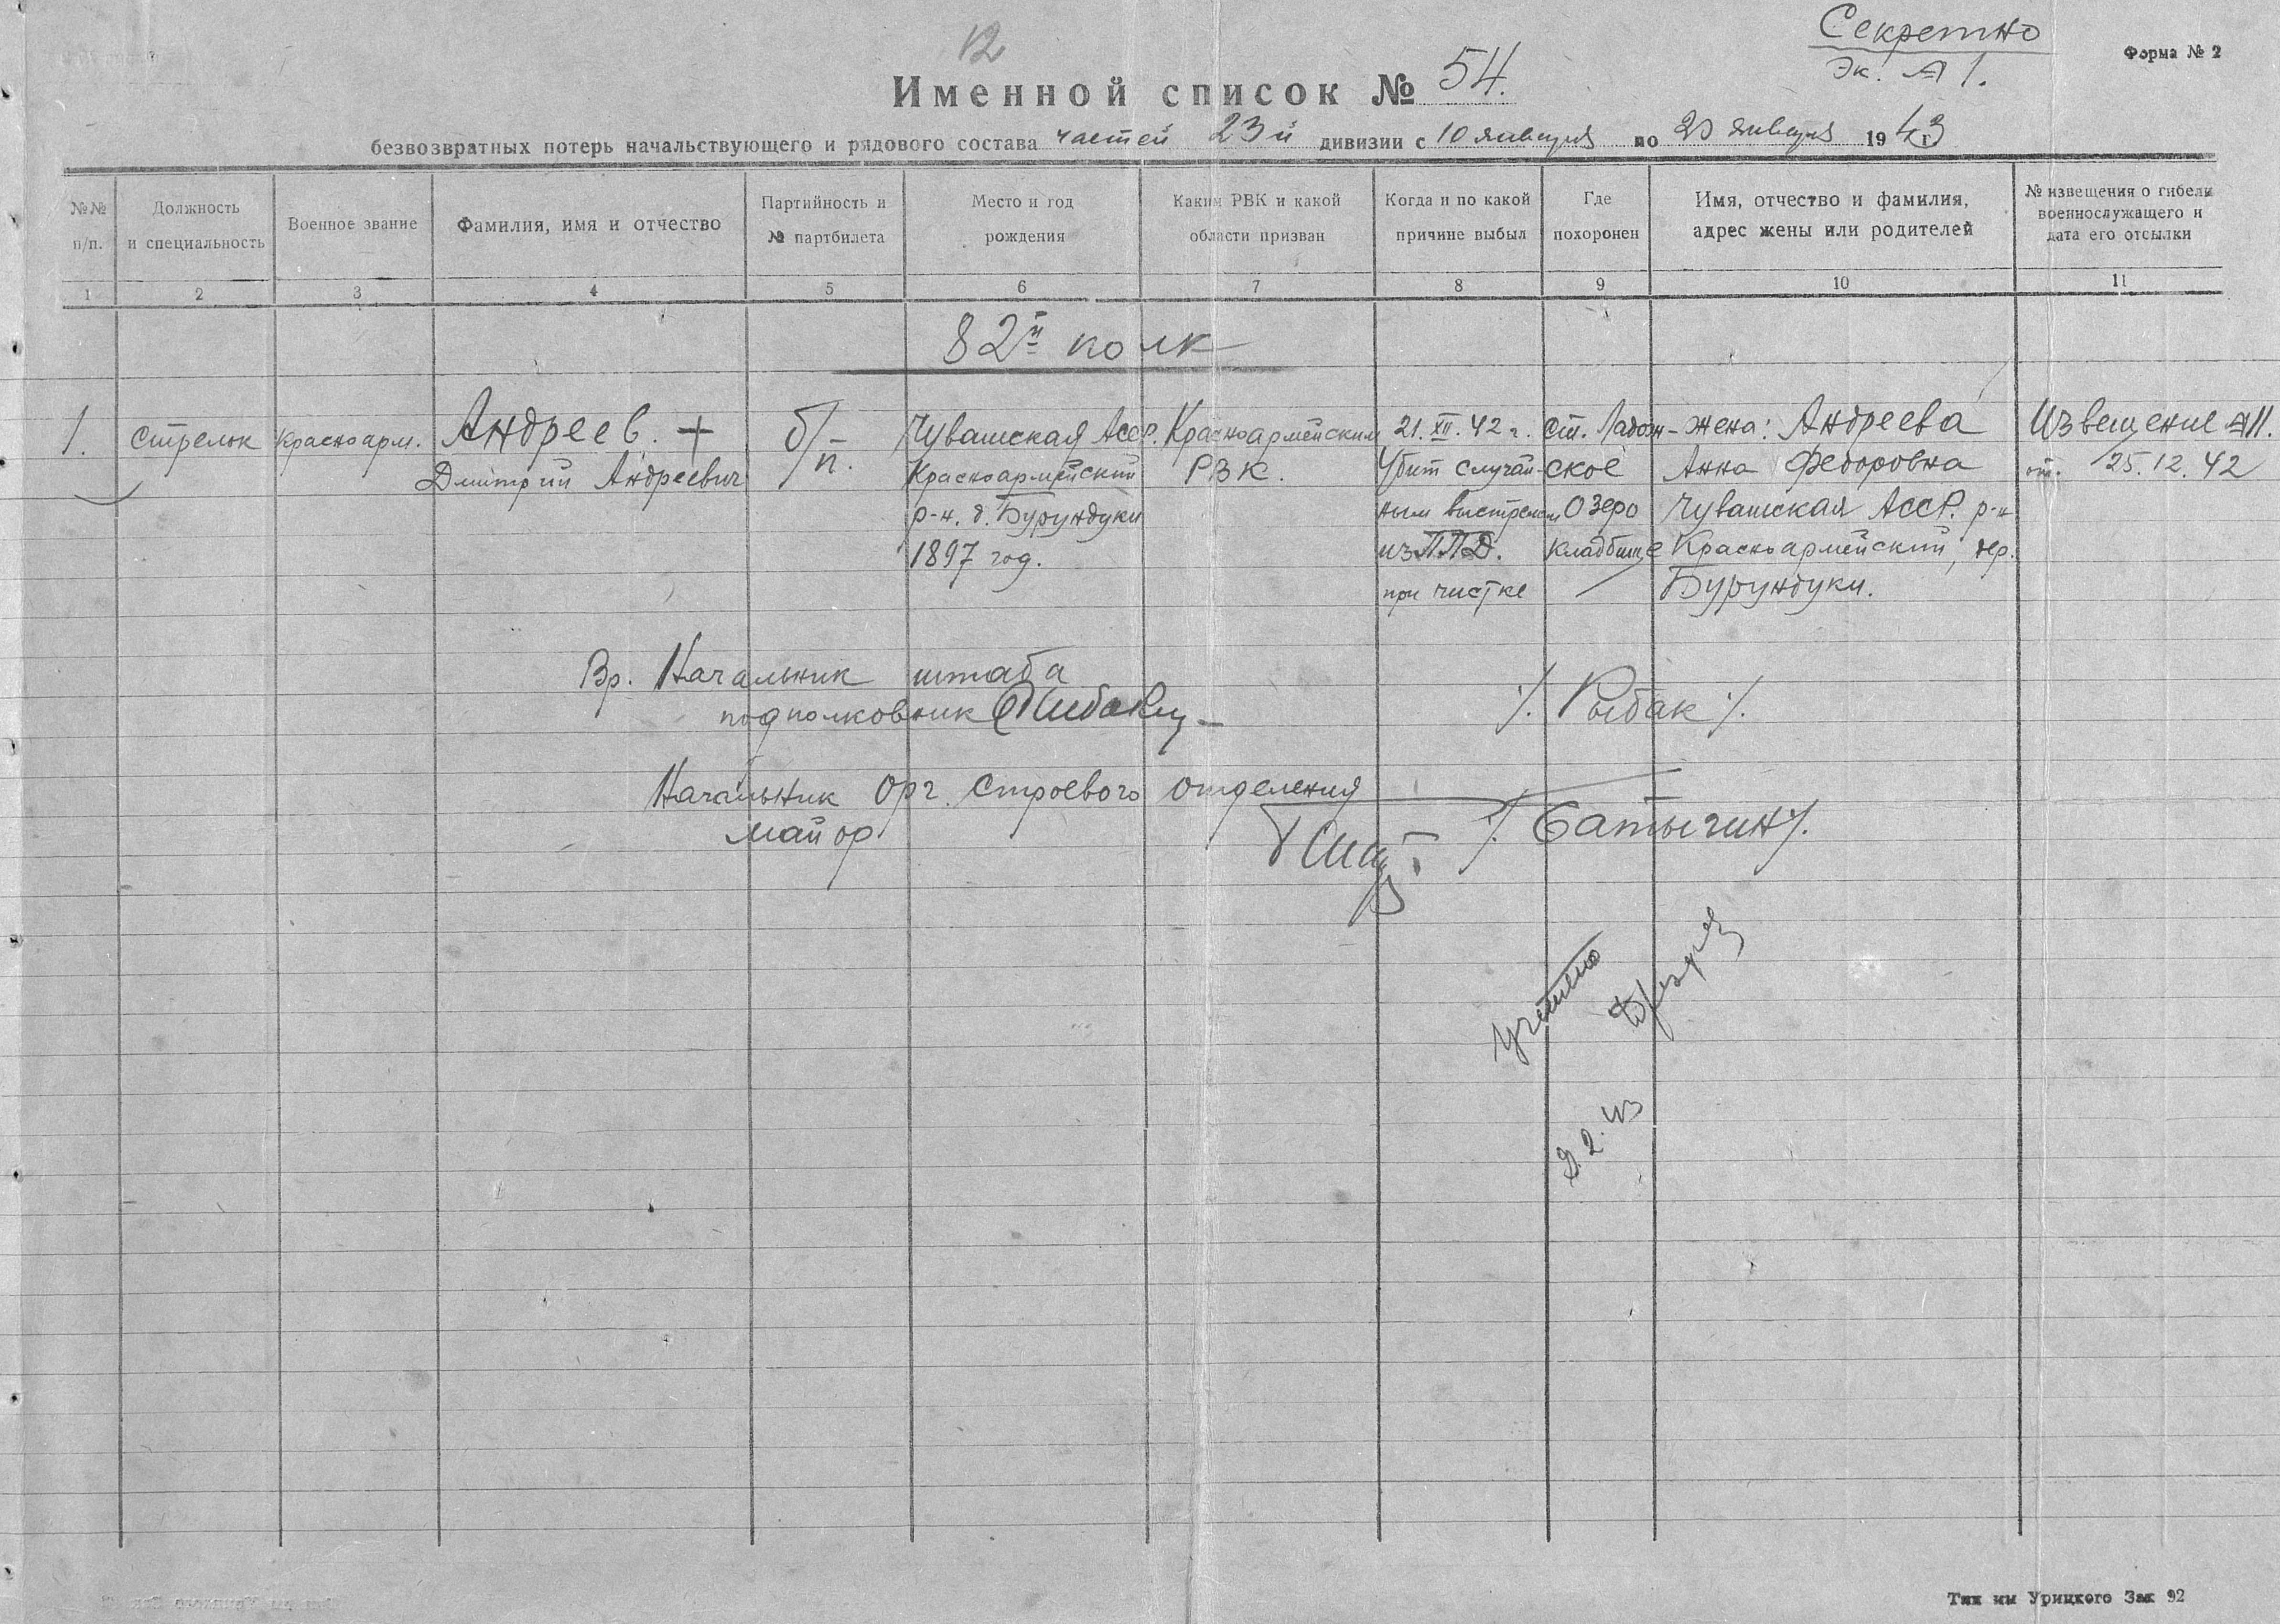 12
Секретно
Эк. № 1.
Форма № 2
Именной список № 54.
безвозвратных потерь начальствующего и рядового состава частей 23й дивизии с 10 января по 20 января 1943 г.
№№ п/п.
Должность и специальность
Военное звание
Фамилия, имя и отчество
Партийность и № партбилета
Место и год рождения
Каким РВК и какой области призван
Когда и по какой причине выбыл
Где похоронен
Имя, отчество и фамилия, адрес жены или родителей
№ извещения о гибели военнослужащего и дата его отсылки
1 2 3 4 5 6 7 8 9 10 11
82й полк
1.
стрелок
красноарм.
Андреев. +
Дмитрий Андреевич
б/п.
Чувашская АССР.
Красноармейский
р-н. д. Бурундуки
1897 год.
Красноармейским
РВК.
21.XII.42 г.
Убит случай-
ным выстрелом
из ППД.
при чистке
ст. Ладож-
ское
Озеро
кладбище
жена: Андреева
Анна Федоровна
Чувашская АССР. р-н
Красноармейский, дер.
Бурундуки.
Извещение №11.
от. 25.12.42
Вр. Начальник штаба
подполковник /. Рыбак /.
Начальник Орг. Строевого отделения
майор /. Батыгин /.
Учтено
2.43
Тип им Урицкого Зак 92